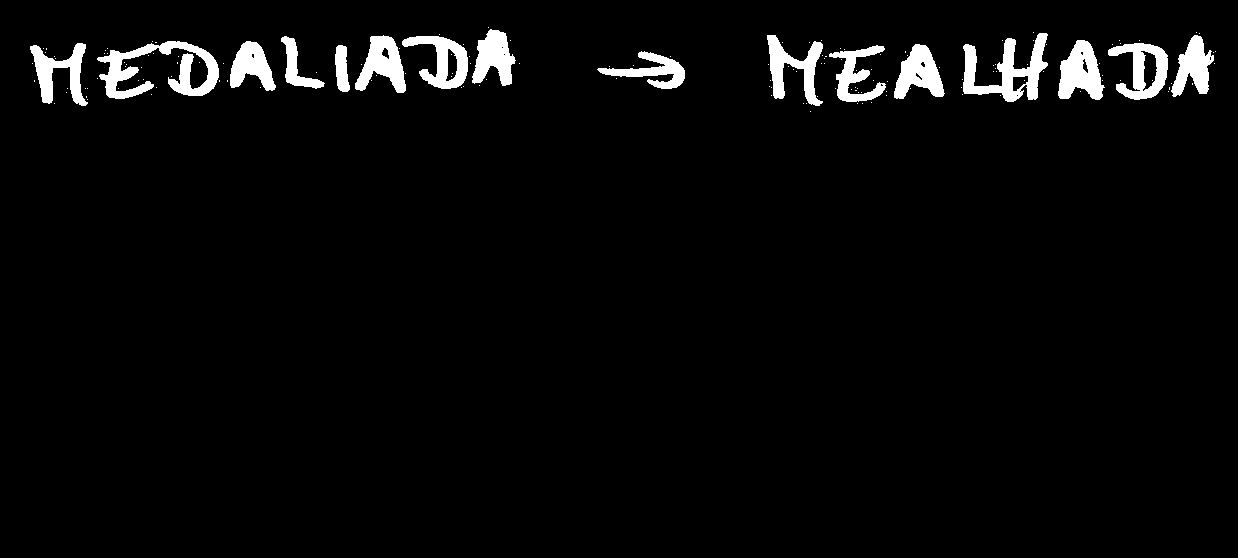 MEDALIADA → MEALHADA